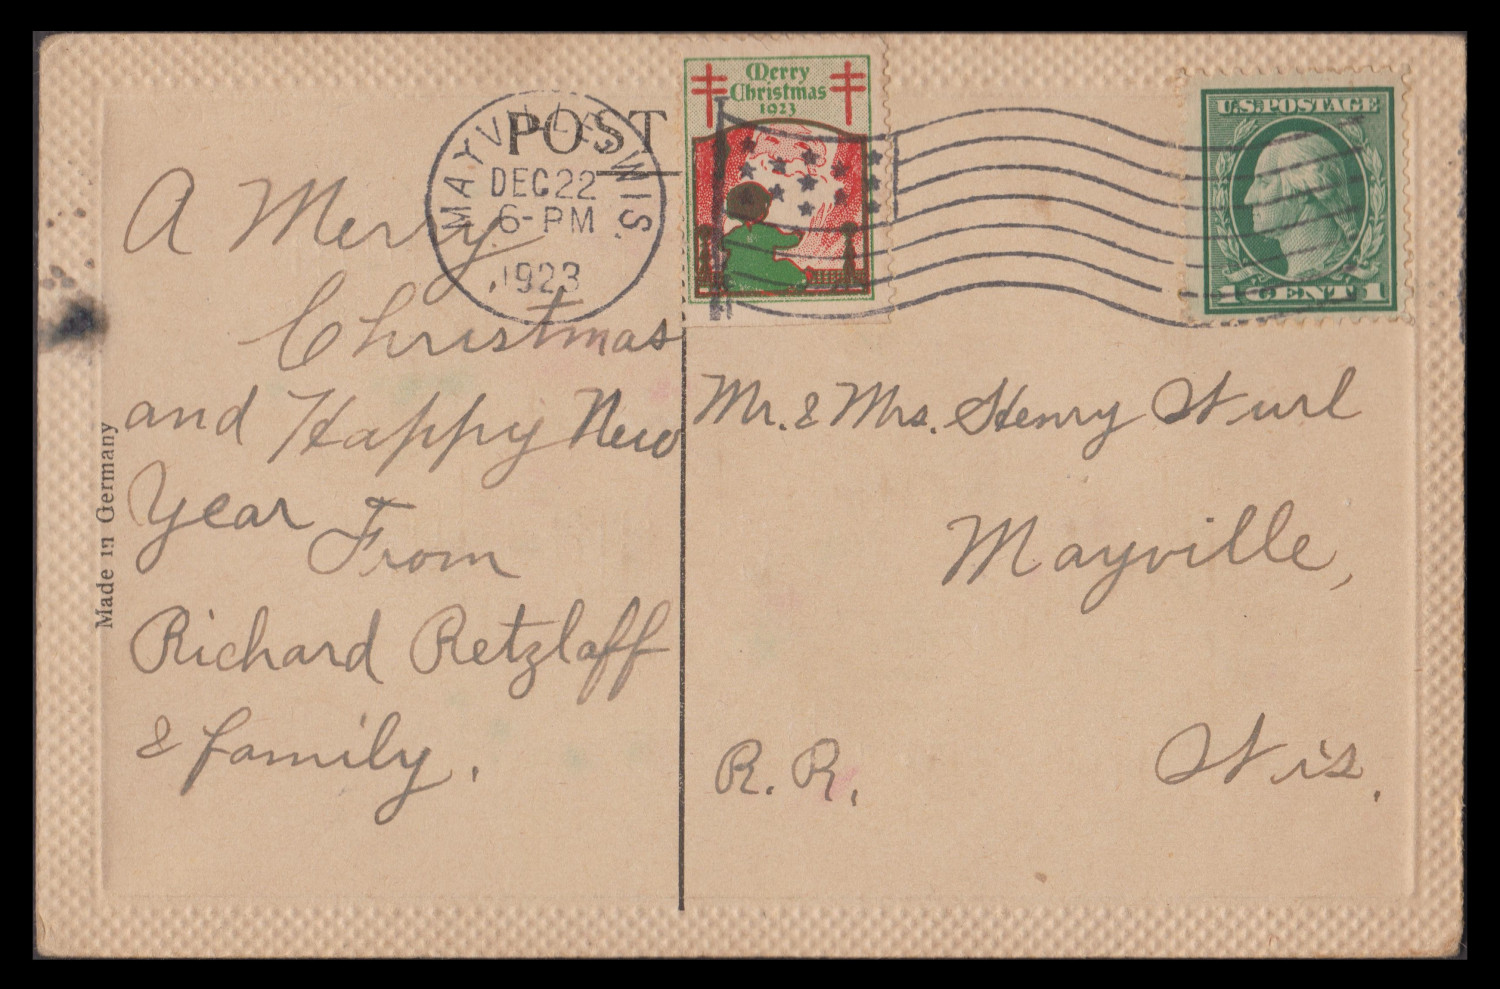 POST
MAYVILLE WIS.
DEC 22
6-PM
1923
Merry
Christmas
1923
U.S. POSTAGE
1 CENT 1
A Merry
Christmas
and Happy New
Year From
Richard Retzlaff
& family.
Made in Germany
Mr. & Mrs. Henry Wurl
Mayville,
R. R. Wis.